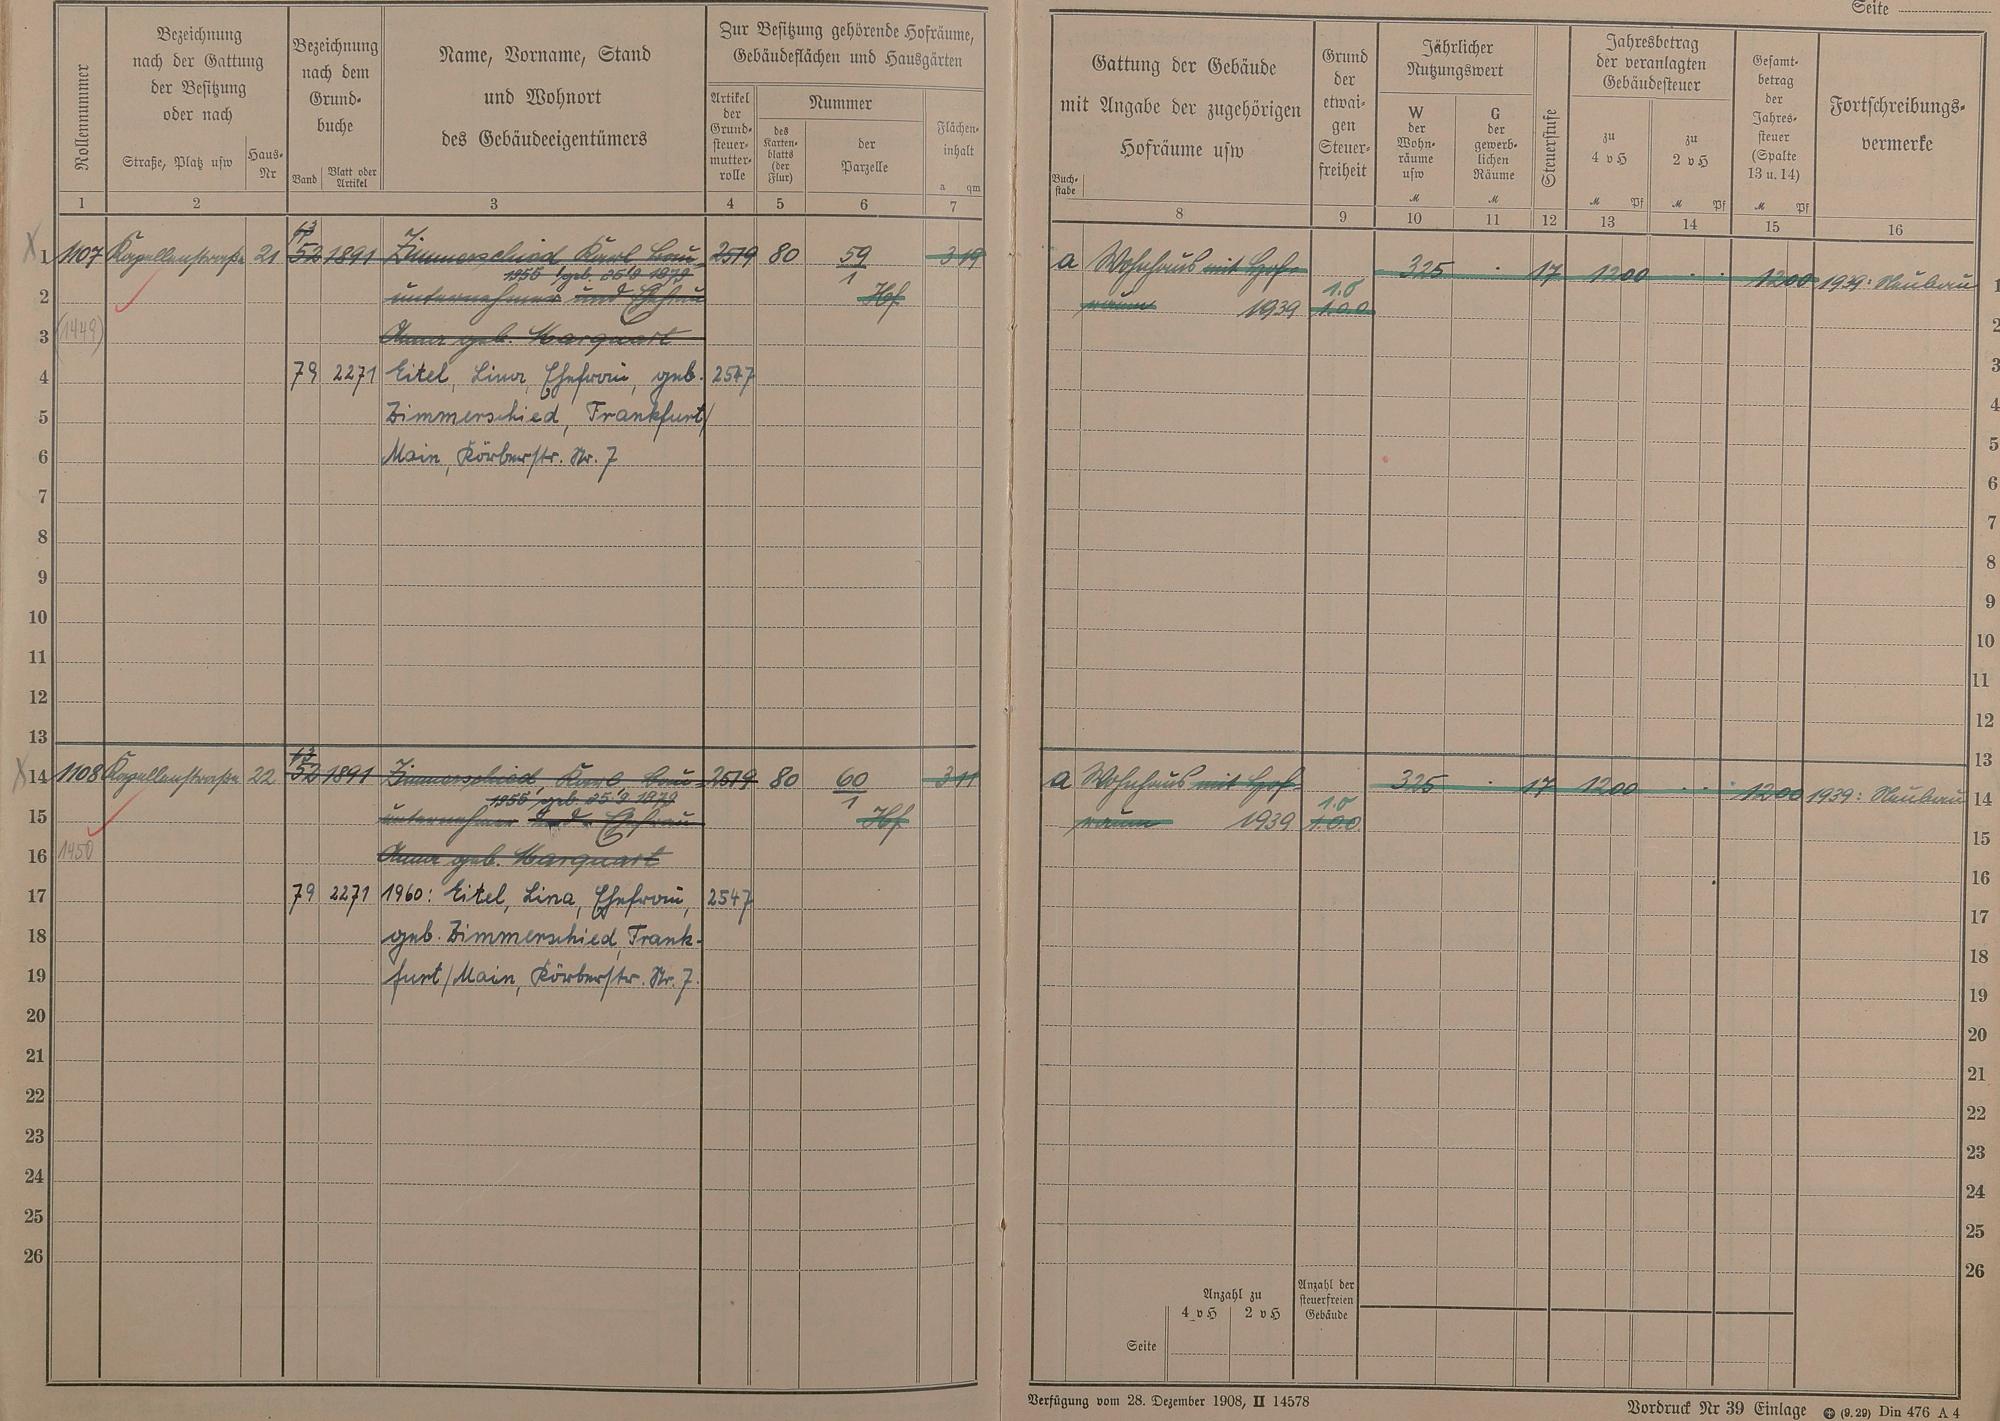 Seite
Rollennummer
Bezeichnung
nach der Gattung
der Besitzung
oder nach
Straße, Platz usw
Haus-
Nr
Bezeichnung
nach dem
Grund-
buche
Band
Blatt oder
Artikel
Name, Vorname, Stand
und Wohnort
des Gebäudeeigentümers
Zur Besitzung gehörende Hofräume,
Gebäudeflächen und Hausgärten
Artikel
der
Grund-
steuer-
mutter-
rolle
Nummer
des
Karten-
blatts
(der
Flur)
der
Parzelle
Flächen-
inhalt
a qm
1 2 3 4 5 6 7
1 1107 Kapellenstraße 21 52 1891 Zimmerschied Karl Bau- 2519 80 59 3 19
1955 geb. 25.9.1879 1
2 unternehmer und Ehefrau Hf
3 (1449) Anna geb. Marquart
4 79 2271 Eitel, Lina, Ehefrau, geb. 2547
5 Zimmerschied, Frankfurt/
6 Main, Körberstr. Nr. 7
7
8
9
10
11
12
13
14 1108 Kapellenstraße 22 52 1891 Zimmerschied, Karl, Bau- 2519 80 60 3 11
1955 geb. 25.9.1879 1
15 unternehmer und Ehefrau Hf
16 1450 Anna geb. Marquart
17 79 2271 1960: Eitel, Lina, Ehefrau, 2547
18 geb. Zimmerschied, Frank-
19 furt/Main, Körberstr. Nr. 7.
20
21
22
23
24
25
26
Gattung der Gebäude
mit Angabe der zugehörigen
Hofräume usw
Buch-
stabe
Grund
der
etwai-
gen
Steuer-
freiheit
Jährlicher
Nutzungswert
W
der
Wohn-
räume
usw
M
G
der
gewerb-
lichen
Räume
M
Steuerstufe
Jahresbetrag
der veranlagten
Gebäudesteuer
zu
4 v H
M Pf
zu
2 v H
M Pf
Gesamt-
betrag
der
Jahres-
steuer
(Spalte
13 u. 14)
M Pf
Fortschreibungs-
vermerke
8 9 10 11 12 13 14 15 16
a Wohnhaus mit Hof- 325 · 17 12 00 · · 12 00 1939: Neubau 1
raum 1939 1.0.0 2
3
4
5
6
7
8
9
10
11
12
13
a Wohnhaus mit Hof- 325 · 17 12 00 · · 12 00 1939: Neubau 14
raum 1939 1.0.0 15
16
17
18
19
20
21
22
23
24
25
26
Anzahl zu
4 v H 2 v H
Anzahl der
steuerfreien
Gebäude
Seite
Verfügung vom 28. Dezember 1908, II 14578
Vordruck Nr 39 Einlage (9. 29) Din 476 A 4